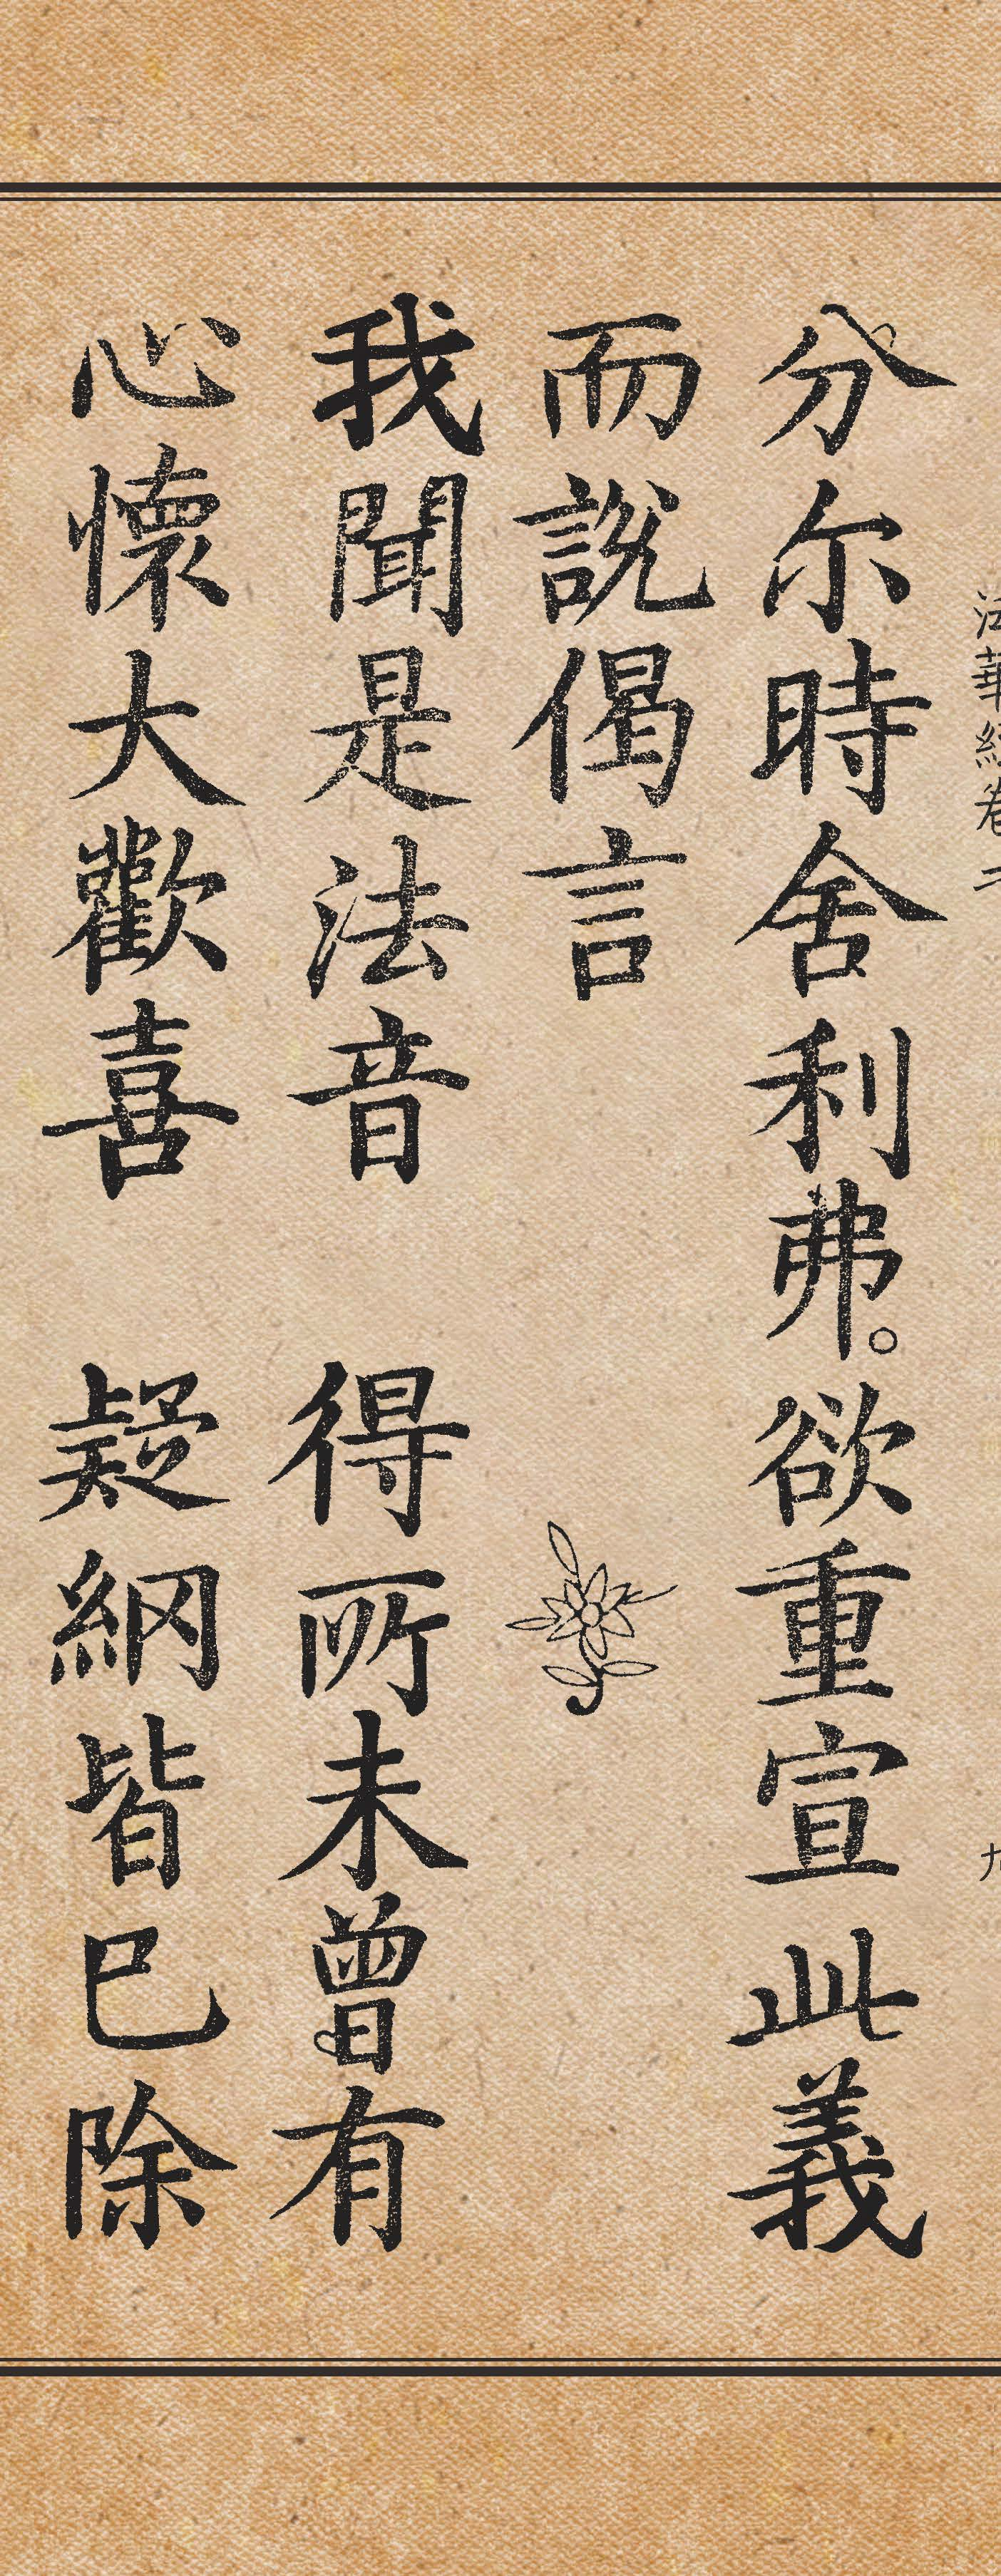 法華經卷二
九
分尔時舍利弗。欲重宣此義
而說偈言
我聞是法音 得所未曾有
心懷大歡喜 疑網皆已除